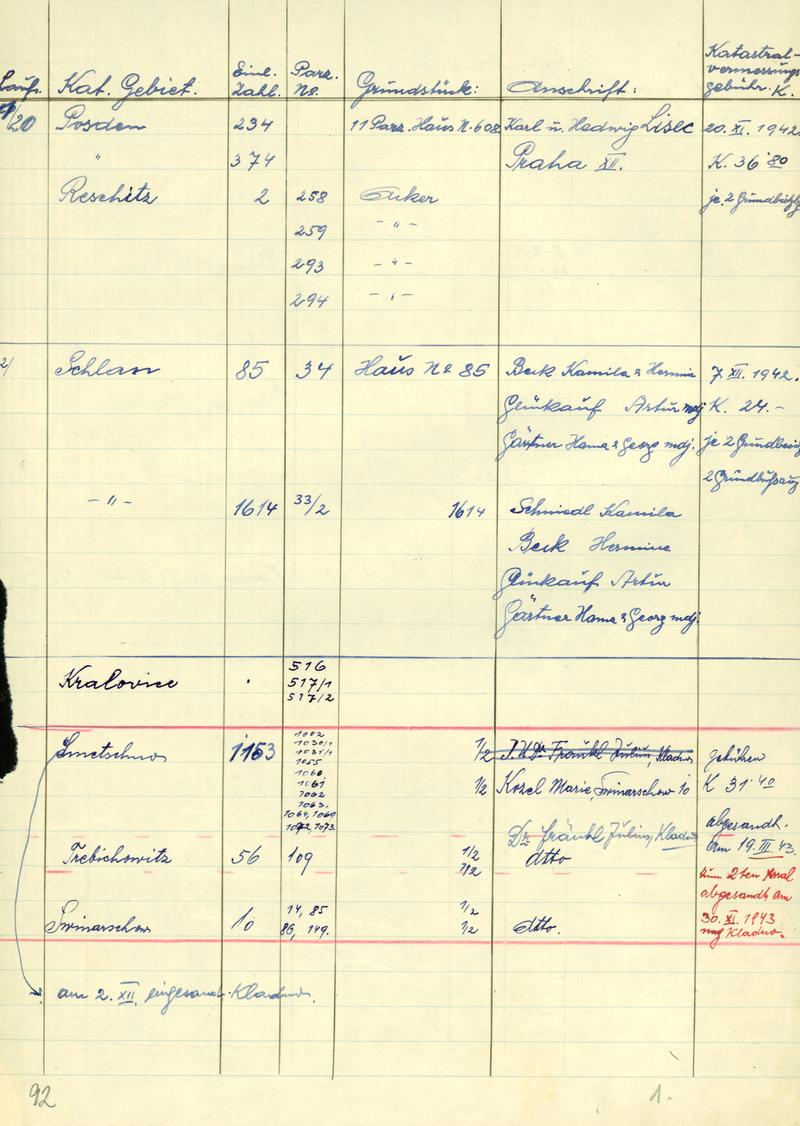 Laufn. Kat. Gebiet. Einl. Zahl. Parz. No. Grundstück: Anschrift: Katastral-vermessungs gebühr. K.
1/20 Posden 234 11 Parz. Haus N. 608 Karl u. Hedwig Lisec 20. XI. 1942.
" 374 Praha XII. K. 36.80
Reschitz 2 258 Acker je 2 Grundbesitzbg
259 - " -
293 - " -
294 - " -
2/ Schlan 85 34 Haus No 85 Beck Kamila & Hermin 7. XII. 1942.
Glückauf Artur mdj K. 24.-
Gärtner Hana & Georg mdj. je 2 Grundbesitz
- " - 1614 33/2 1614 Schmiedl Kamila
Beck Hermine
Glückauf Artur
Gärtner Hana & Georg mdj.
Kralovice . 516
517/1
517/2
Smetschno 1153 1002 1/2 J.U.Dr. Fränkl Julius, Kladno Gebühren
1030/1
1031/1
1055
1060, 1/2 Kozel Marie, Swinarschow 10 K 31.40
1061
1062
1063,
1064, 1069
1072, 1073. Dr. Fränkl Julius, Kladno abgesandt.
am 19. III. 43.
Trebichowitz 56 109 1/2 dtto
1/2 zum 2ten Mal
abgesandt am
Swinarschow 10 14, 85 1/2 dtto. 30. XI. 1943
86, 149. 1/2 nach Kladno.
am 2. XII. eingesandt Kladno.
92 1.